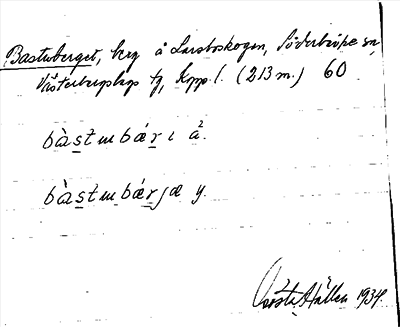 Bastuberget, berg å Larsboskogen, Söderbärke sn,
Västerbergslags fg, Kopp. l. (213 m.) 60
bàstubǽrı á2.
bàstubǽrjæ y.
Gösta Hallen 1934.